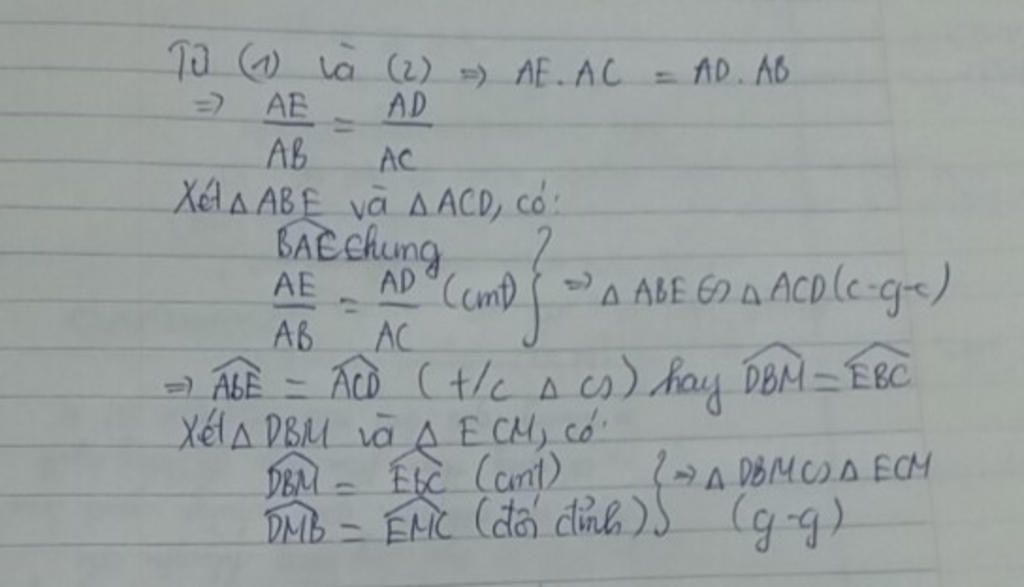 Từ (1) và (2) => AE.AC = AD.AB
=> AE/AB = AD/AC
Xét Δ ABE và Δ ACD, có:
\widehat{BAE} chung
AE/AB = AD/AC (cmt) } => Δ ABE ∽ Δ ACD (c-g-c)
=> \widehat{ABE} = \widehat{ACD} (t/c Δ ∽) hay \widehat{DBM} = \widehat{EBC}
Xét Δ DBM và Δ ECM, có:
\widehat{DBM} = \widehat{EBC} (cmt) } => Δ DBM ∽ Δ ECM
\widehat{DMB} = \widehat{EMC} (đối đỉnh) (g-g)